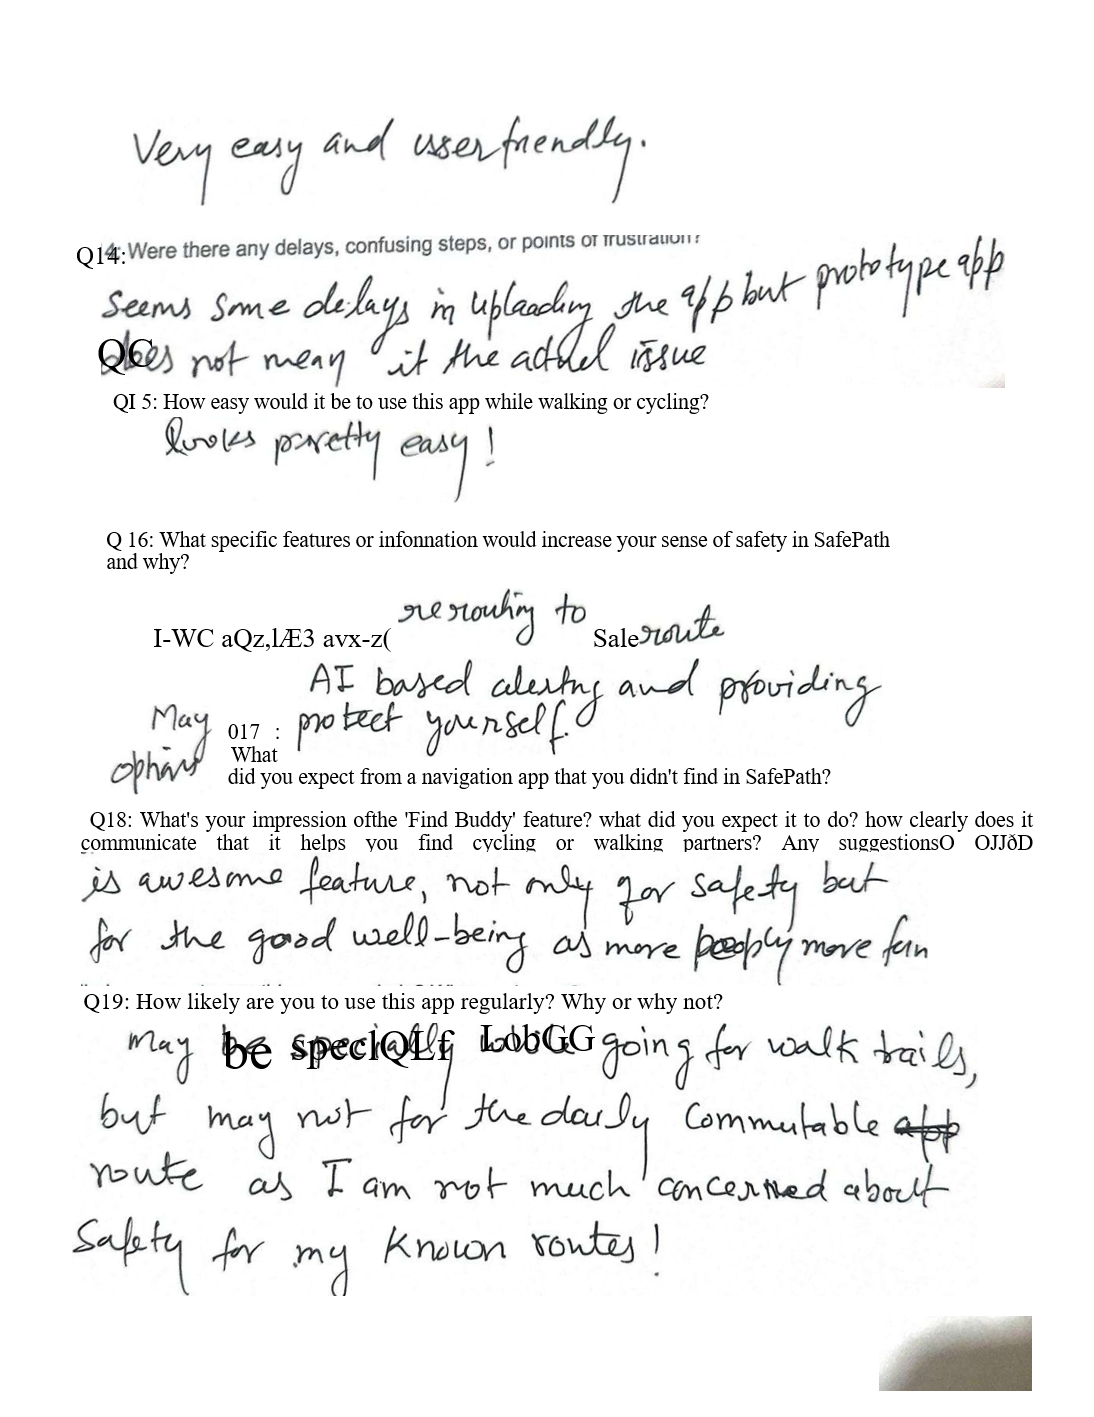 Very easy and userfriendly.
Q14: Were there any delays, confusing steps, or points of frustration?
Seems some delays in uploading the app but prototype app
does not mean it the actual issue
QI 5: How easy would it be to use this app while walking or cycling?
looks pretty easy!
Q 16: What specific features or infonnation would increase your sense of safety in SafePath
and why?
I-WC aQz,lÆ3 avx-z( rerouting to Sale route
AI based alerting and providing
May 017 : protect yourself.
options What
did you expect from a navigation app that you didn't find in SafePath?
Q18: What's your impression ofthe 'Find Buddy' feature? what did you expect it to do? how clearly does it
communicate that it helps you find cycling or walking partners? Any suggestionsO OJJðD
is awesome feature, not only for safety but
for the good well-being as more people more fun
Q19: How likely are you to use this app regularly? Why or why not?
May be speclQLf LobGG going for walk trails,
but may not for the daily commutable app
route as I am not much concerned about
Safety for my known routes!